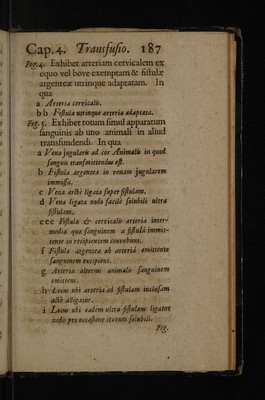 Cap. 4. Transfusio. 187
Fig. 4. Exhibet arteriam cervicalem ex
equo vel bove exemptam & fistulæ
argenteæ utrinque adaptatam. In
qua
a Arteria cervicalis.
b b Fistula utrinque arteriæ adaptata.
Fig. 5. Exhibet totum simul apparatum
sanguinis ab uno animali in aliud
transfundendi. In qua
a Vena jugularis ad cor Animalis in quod
sanguis transmittendus est.
b Fistula argentea in venam jugularem
immissa.
c Vena arctè ligata super fistulam.
d Vena ligata nodo facilè solubili ultra
fistulam.
e e e Fistula & cervicalis arteria inter-
media quæ sanguinem a fistulâ immit-
tente in recipientem convehunt.
f Fistula argentea ab arteriâ emittente
sanguinem excipiens.
g Arteria alterius animalis sanguinem
emittens.
h Locus ubi arteria ad fistulam inclusam
arctè alligatur.
i Locus ubi eadem ultra fistulam ligatur
nodo pro occasione iterum solubili.
Fig.